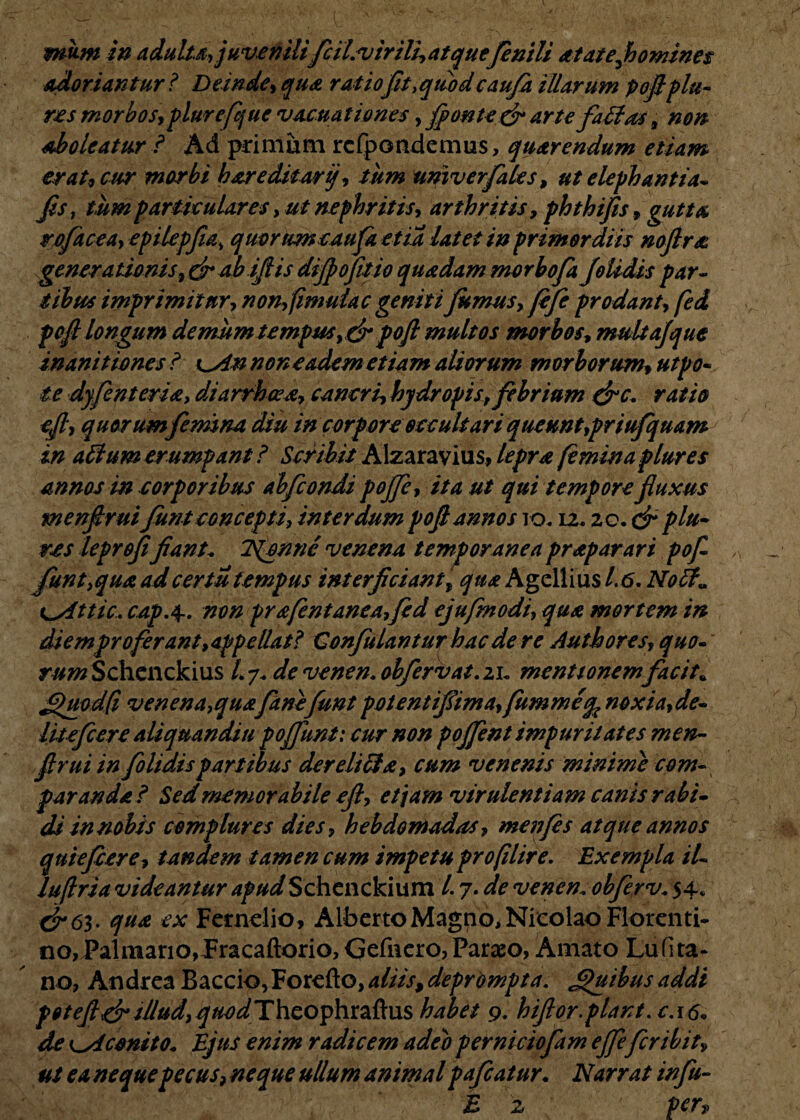 mum in adulta, juvenili ſcil. virili, atque ſenili ætate, homines
adoriantur? Deinde, quæ ratio ſit, quod cauſa illarum poſt plu-
res morbos, plureſque vacuationes, ſponte & arte factas, non
aboleatur? Ad primum reſpondemus, quærendum etiam
erat, cur morbi hæreditarij, tum univerſales, ut elephantia-
ſis, tum particulares, ut nephritis, arthritis, phthiſis, gutta
roſacea, epilepſia, quorum cauſa etiā latet in primordiis noſtræ
generationis, & ab iſtis diſpoſitio quædam morboſa ſolidis par-
tibus imprimitur, non, ſimulac geniti ſumus, ſeſe prodant, ſed
poſt longum demùm tempus, & poſt multos morbos, multaſque
inanitiones? An non eadem etiam aliorum morborum, utpo-
te dyſenteriæ, diarrhœæ, cancri, hydropis, febrium &c. ratio
eſt, quorum ſemina diu in corpore occultari queunt, priuſquam
in actum erumpant? Scribit Alzaravius, lepræ ſemina plures
annos in corporibus abſcondi poſſe, ita ut qui tempore fluxus
menſtrui ſunt concepti, interdum poſt annos 10. 12. 20. & plu-
res leproſi fiant. Nonne venena temporanea præparari poſ-
ſunt, quæ ad certū tempus interficiant, quæ Agellius l. 6. Noct.
Attic. cap. 4. non præſentanea, ſed ejuſmodi, quæ mortem in
diem proferant, appellat? Conſulantur hac de re Authores, quo-
rum Schenckius l. 7. de venen. obſervat. 21. mentionem facit.
Quodſi venena, quæ ſanè ſunt potentiſſima, ſummèq; noxia, de-
liteſcere aliquandiu poſſunt: cur non poſſent impuritates men-
ſtrui in ſolidis partibus derelictæ, cum venenis minimè com-
parandæ? Sed memorabile eſt, etjam virulentiam canis rabi-
di in nobis complures dies, hebdomadas, menſes atque annos
quieſcere, tandem tamen cum impetu proſilire. Exempla il-
luſtria videantur apud Schenckium l. 7. de venen. obſerv. 54.
& 63. quæ ex Fernelio, Alberto Magno, Nicolao Florenti-
no, Palmario, Fracaſtorio, Geſnero, Paræo, Amato Luſita-
no, Andrea Baccio, Foreſto, aliis, deprompta. Quibus addi
poteſt & illud, quod Theophraſtus habet 9. hiſtor. plant. c. 16.
de Aconito. Ejus enim radicem adeò pernicioſam eſſe ſcribit,
ut ea neque pecus, neque ullum animal paſcatur. Narrat inſu-
E 2 per,